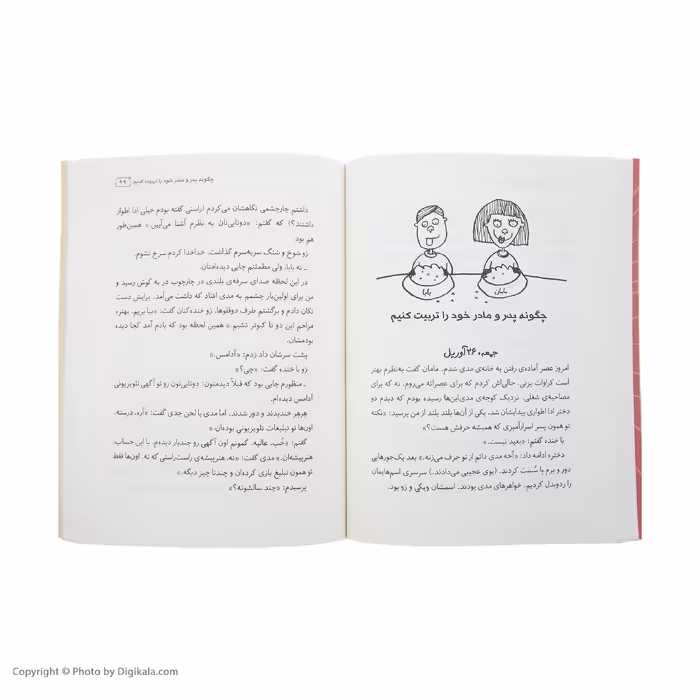 بابا
مامان
چگونه پدر و مادر خود را تربیت کنیم
جمعه، ۲۶ آوریل
امروز عصر آماده‌ی رفتن به خانه‌ی مدی شدم. مامان گفت به‌نظرم بهتر
است کراوات بزنی. حالی‌اش کردم که برای عصرانه می‌روم. نه که برای
مصاحبه‌ی شغلی. نزدیک کوچه‌ی مدی‌این‌ها رسیده بودم که دیدم دو
دختر ادا اطواری پیدایشان شد. یکی از آن‌ها بلند بلند از من پرسید: «نکنه
تو همون پسر اسرارآمیزی که همیشه حرفش هست؟»
با خنده گفتم: «بعید نیست.»
دختره ادامه داد: «آخه مدی دائم از تو حرف می‌زنه.» بعد یک‌جورهایی
دور و برم با سُست کردند. (بوی عجیبی می‌دادند.) سرسری اسم‌هایمان
را ردوبدل کردیم. خواهرهای مدی بودند. اسمشان ویکی و زو بود.
چگونه پدر و مادر خود را تربیت کنیم ۹۹
داشتم چارچشمی نگاهشان می‌کردم (راستی گفته بودم خیلی ادا اطوار
داشتند؟) که گفتم: «دوتایی‌تان به نظرم آشنا می‌آیین.» همین‌طور
هم بود.
زو شوخ و شنگ سربه‌سرم گذاشت. خداخدا کردم سرخ نشوم.
ـ نه بابا. ولی مطمئنم جایی دیده‌امتان.
در این لحظه صدای سرفه‌ی بلندی در چارچوب در به گوش رسید و
من برای اولین‌بار چشمم به مدی افتاد که داشت می‌آمد. برایش دست
تکان دادم و برگشتم طرف دوقلوها. زو خنده‌کنان گفت: «بیا بریم. بهتره
مزاحم این دو تا کبوتر نشیم.» همین لحظه بود که یادم آمد کجا دیده
بودمشان.
پشت سرشان داد زدم: «آدامس.»
زو با خنده گفت: «چی؟»
ـ منظورم جایی بود که قبلاً دیدمتون: دوتایی‌تون رو تو آگهی تلویزیونی
آدامس دیده‌ام.
هِرهِر خندیدند و دور شدند. اما مدی با لحن جدی گفت: «آره، درسته.
اون‌ها تو تبلیغات تلویزیونی بوده‌ان.»
گفتم: «خُب. عالیه. گمونم اون آگهی رو چندبار دیده‌م. با این حساب،
هنرپیشه‌ان.» مدی گفت: «نه، هنرپیشه‌ی راست‌راستی که نه. اون‌ها فقط
تو همون تبلیغ بازی کرده‌ان و چندتا چیز دیگه.»
پرسیدم: «چند سالشونه؟»
Copyright © Photo by Digikala.com